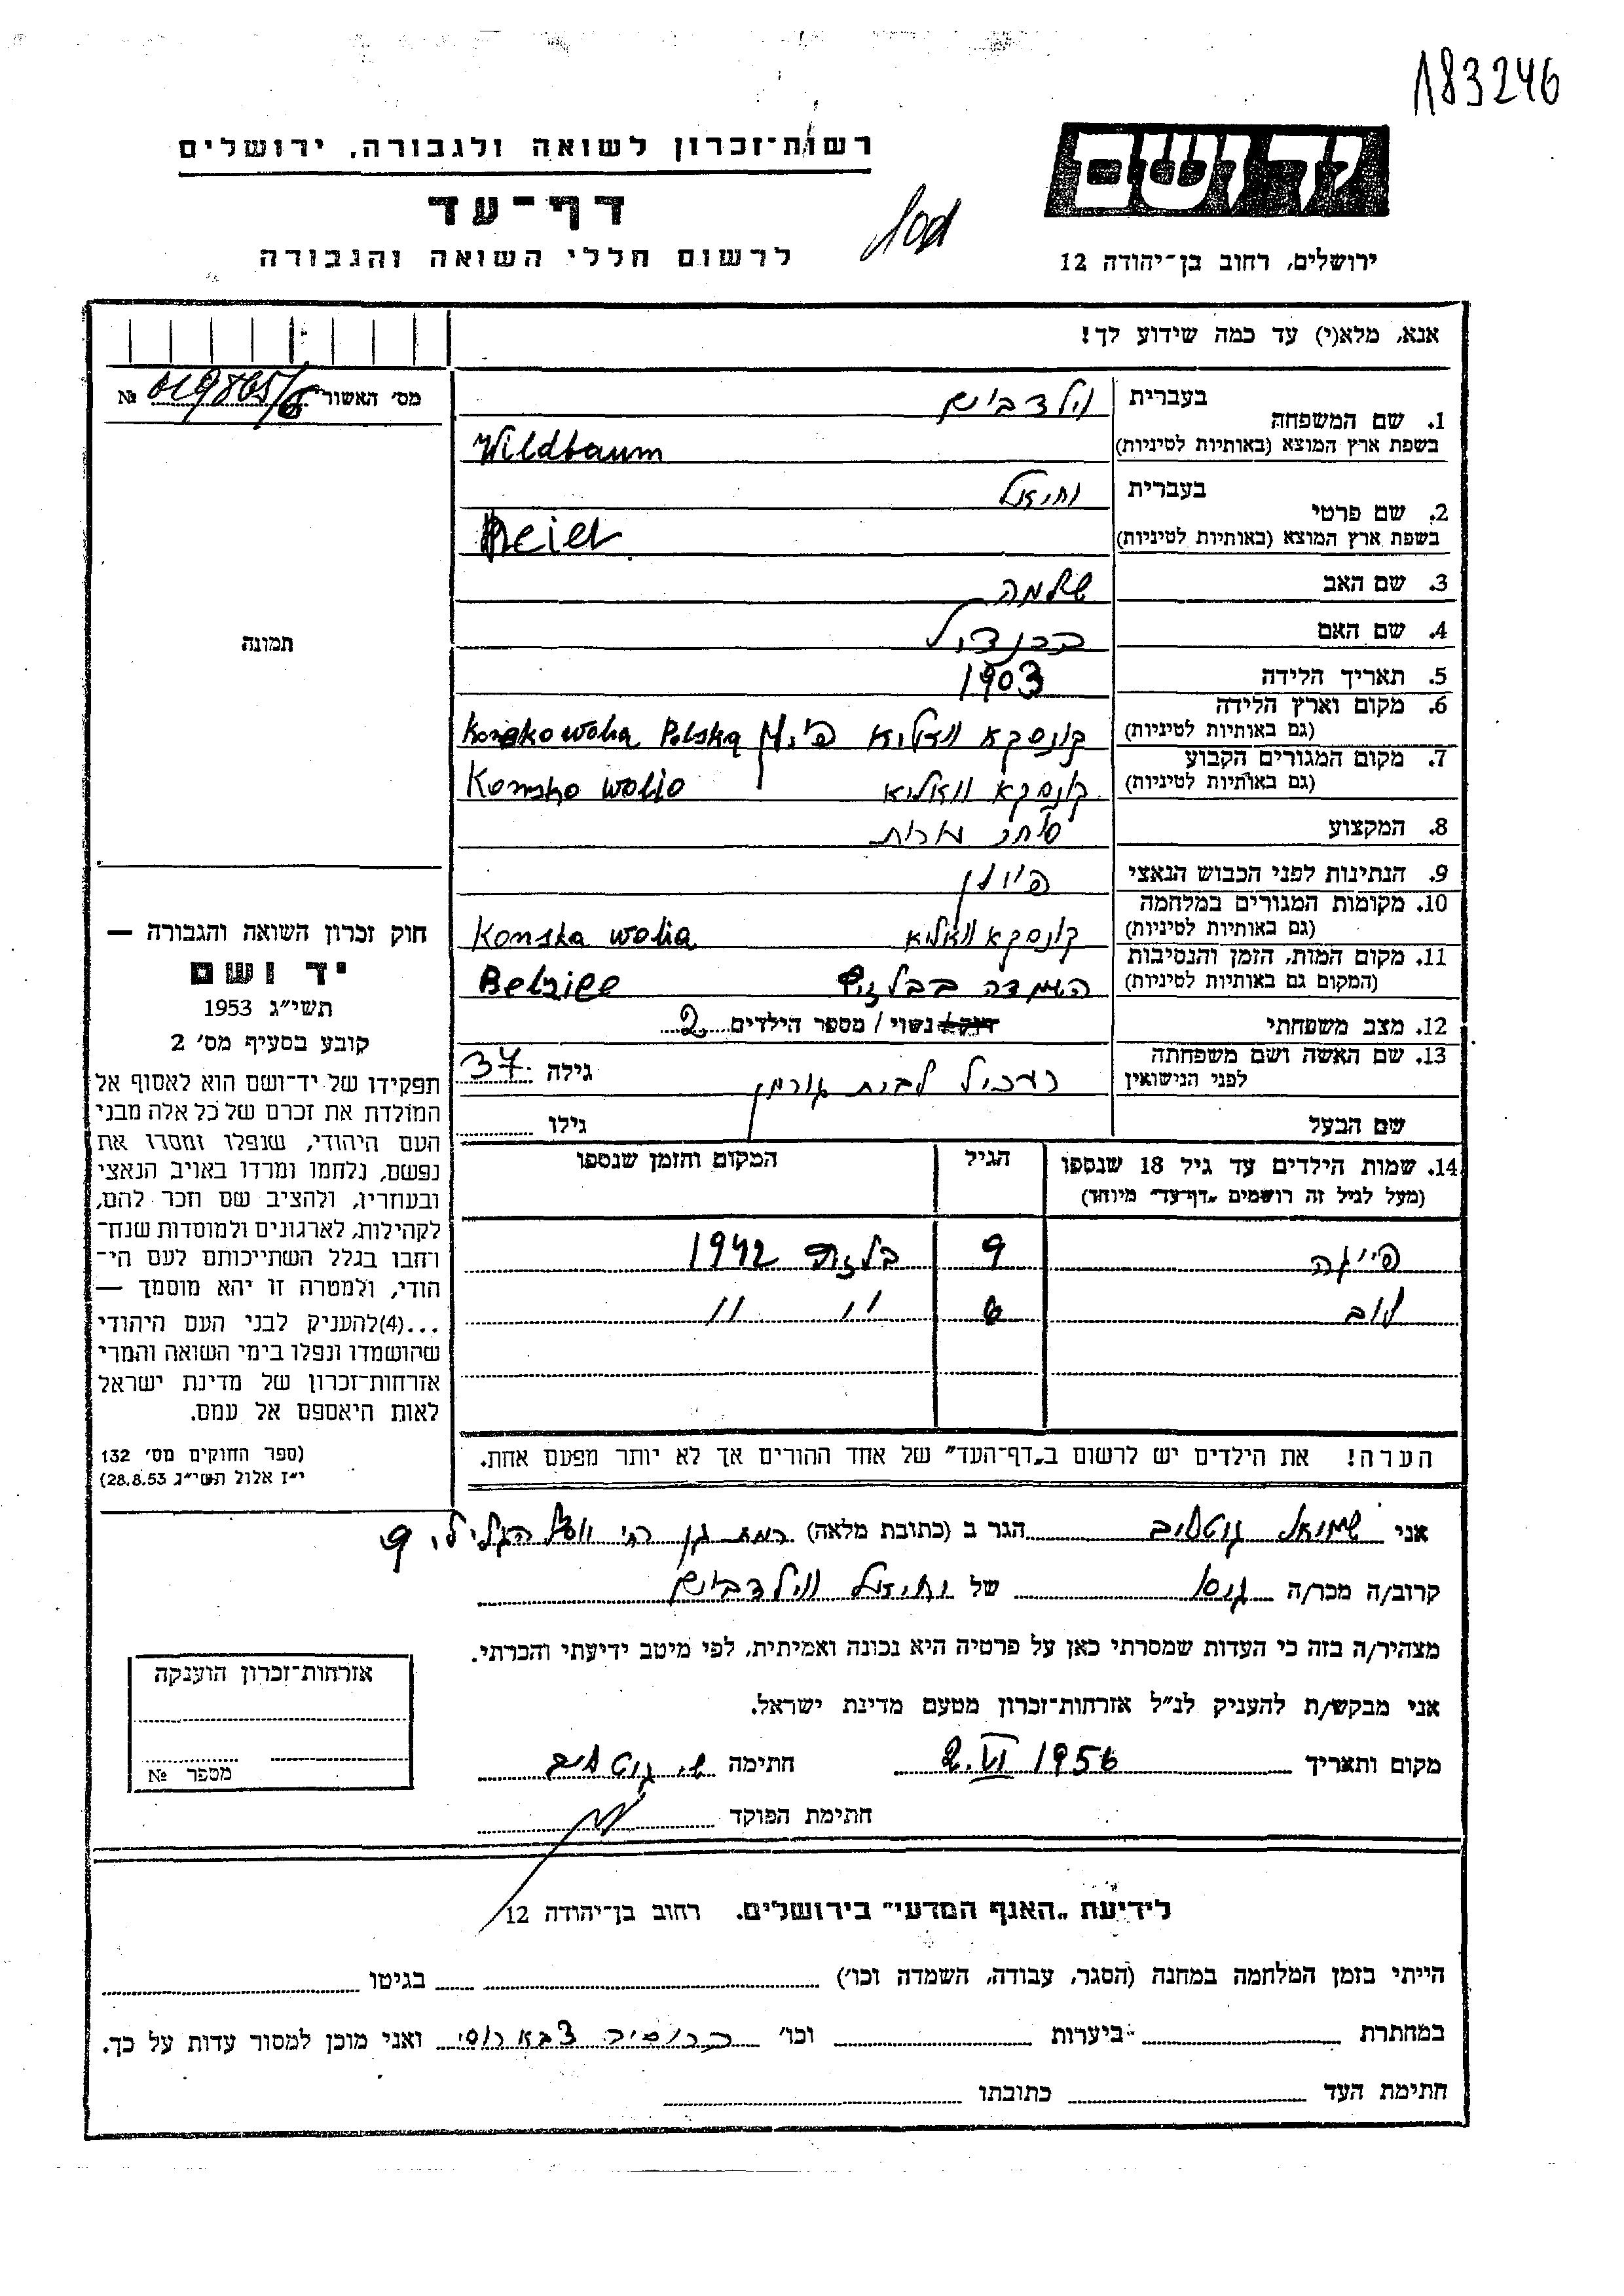 183246
רשות־זכרון לשואה ולגבורה, ירושלים
דף־עד
לרשום חללי השואה והגבורה
יד ושם
ירושלים, רחוב בן־יהודה 12
אנא, מלא(י) עד כמה שידוע לך!
מס' האשור № 019865/6
תמונה
1. שם המשפחה בעברית וילדבוים
בשפת ארץ המוצא (באותיות לטיניות) Wildbaum
2. שם פרטי בעברית
בשפת ארץ המוצא (באותיות לטיניות)
3. שם האב שלמה
4. שם האם
5. תאריך הלידה 1903
6. מקום וארץ הלידה
(גם באותיות לטיניות) קונסקא וואליא Polska
7. מקום המגורים הקבוע
(גם באותיות לטיניות) קונסקא וואליא Konsko wolio
8. המקצוע סוחר
9. הנתינות לפני הכבוש הנאצי פולין
10. מקומות המגורים במלחמה
(גם באותיות לטיניות) קונסקא וואליא Konska wolia
11. מקום המות, הזמן והנסיבות
(המקום גם באותיות לטיניות) השמדה בבלזץ
12. מצב משפחתי רווק/ נשוי / מספר הילדים 2
13. שם האשה ושם משפחתה
לפני הנישואין לבית גילה 37
שם הבעל גילו
14. שמות הילדים עד גיל 18 שנספו הגיל המקום והזמן שנספו
(מעל לגיל זה רושמים „דף־עד" מיוחד)
פייגה 9 בלזץ 1942
6 " "
הערה! את הילדים יש לרשום ב„דף־העד" של אחד ההורים אך לא יותר מפעם אחת.
חוק זכרון השואה והגבורה —
יד ושם
תשי"ג 1953
קובע בסעיף מס' 2
תפקידו של יד־ושם הוא לאסוף אל
המולדת את זכרם של כל אלה מבני
העם היהודי, שנפלו ומסרו את
נפשם, נלחמו ומרדו באויב הנאצי
ובעוזריו, ולהציב שם וזכר להם,
לקהילות, לארגונים ולמוסדות שנח־
רחבו בגלל השתייכותם לעם הי־
הודי, ולמטרה זו יהא מוסמך —
...(4)להעניק לבני העם היהודי
שהושמדו ונפלו בימי השואה והמרי
אזרחות־זכרון של מדינת ישראל
לאות היאספם אל עמם.
(ספר החוקים מס' 132
י"ז אלול תשי"ג 28.8.53)
אני שמואל גוטליב הגר ב (כתובת מלאה) רמת גן רח' יוסי הגלילי 9
קרוב/ה מכר/ה גיסו של וילדבוים
מצהיר/ה בזה כי העדות שמסרתי כאן על פרטיה היא נכונה ואמיתית, לפי מיטב ידיעתי והכרתי.
אני מבקש/ת להעניק לנ"ל אזרחות־זכרון מטעם מדינת ישראל.
מקום ותאריך 2.VI 1956 חתימה ש. גוטליב
חתימת הפוקד
אזרחות־זכרון הוענקה
מספר №
לידיעת „האגף המדעי" בירושלים, רחוב בן־יהודה 12
הייתי בזמן המלחמה במחנה (הסגר, עבודה, השמדה וכו') בגיטו
במחתרת ביערות וכו' ברוסיה צבא רוסי ואני מוכן למסור עדות על כך.
חתימת העד כתובתו